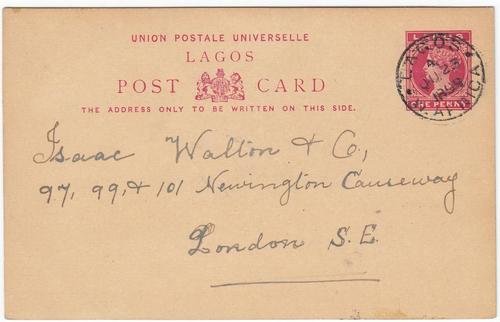 UNION POSTALE UNIVERSELLE
LAGOS
POST CARD
THE ADDRESS ONLY TO BE WRITTEN ON THIS SIDE.
LAGOS
ONE PENNY
LAGOS
Isaac Walton & Co,
97, 99, & 101 Newington Causeway
London S.E.